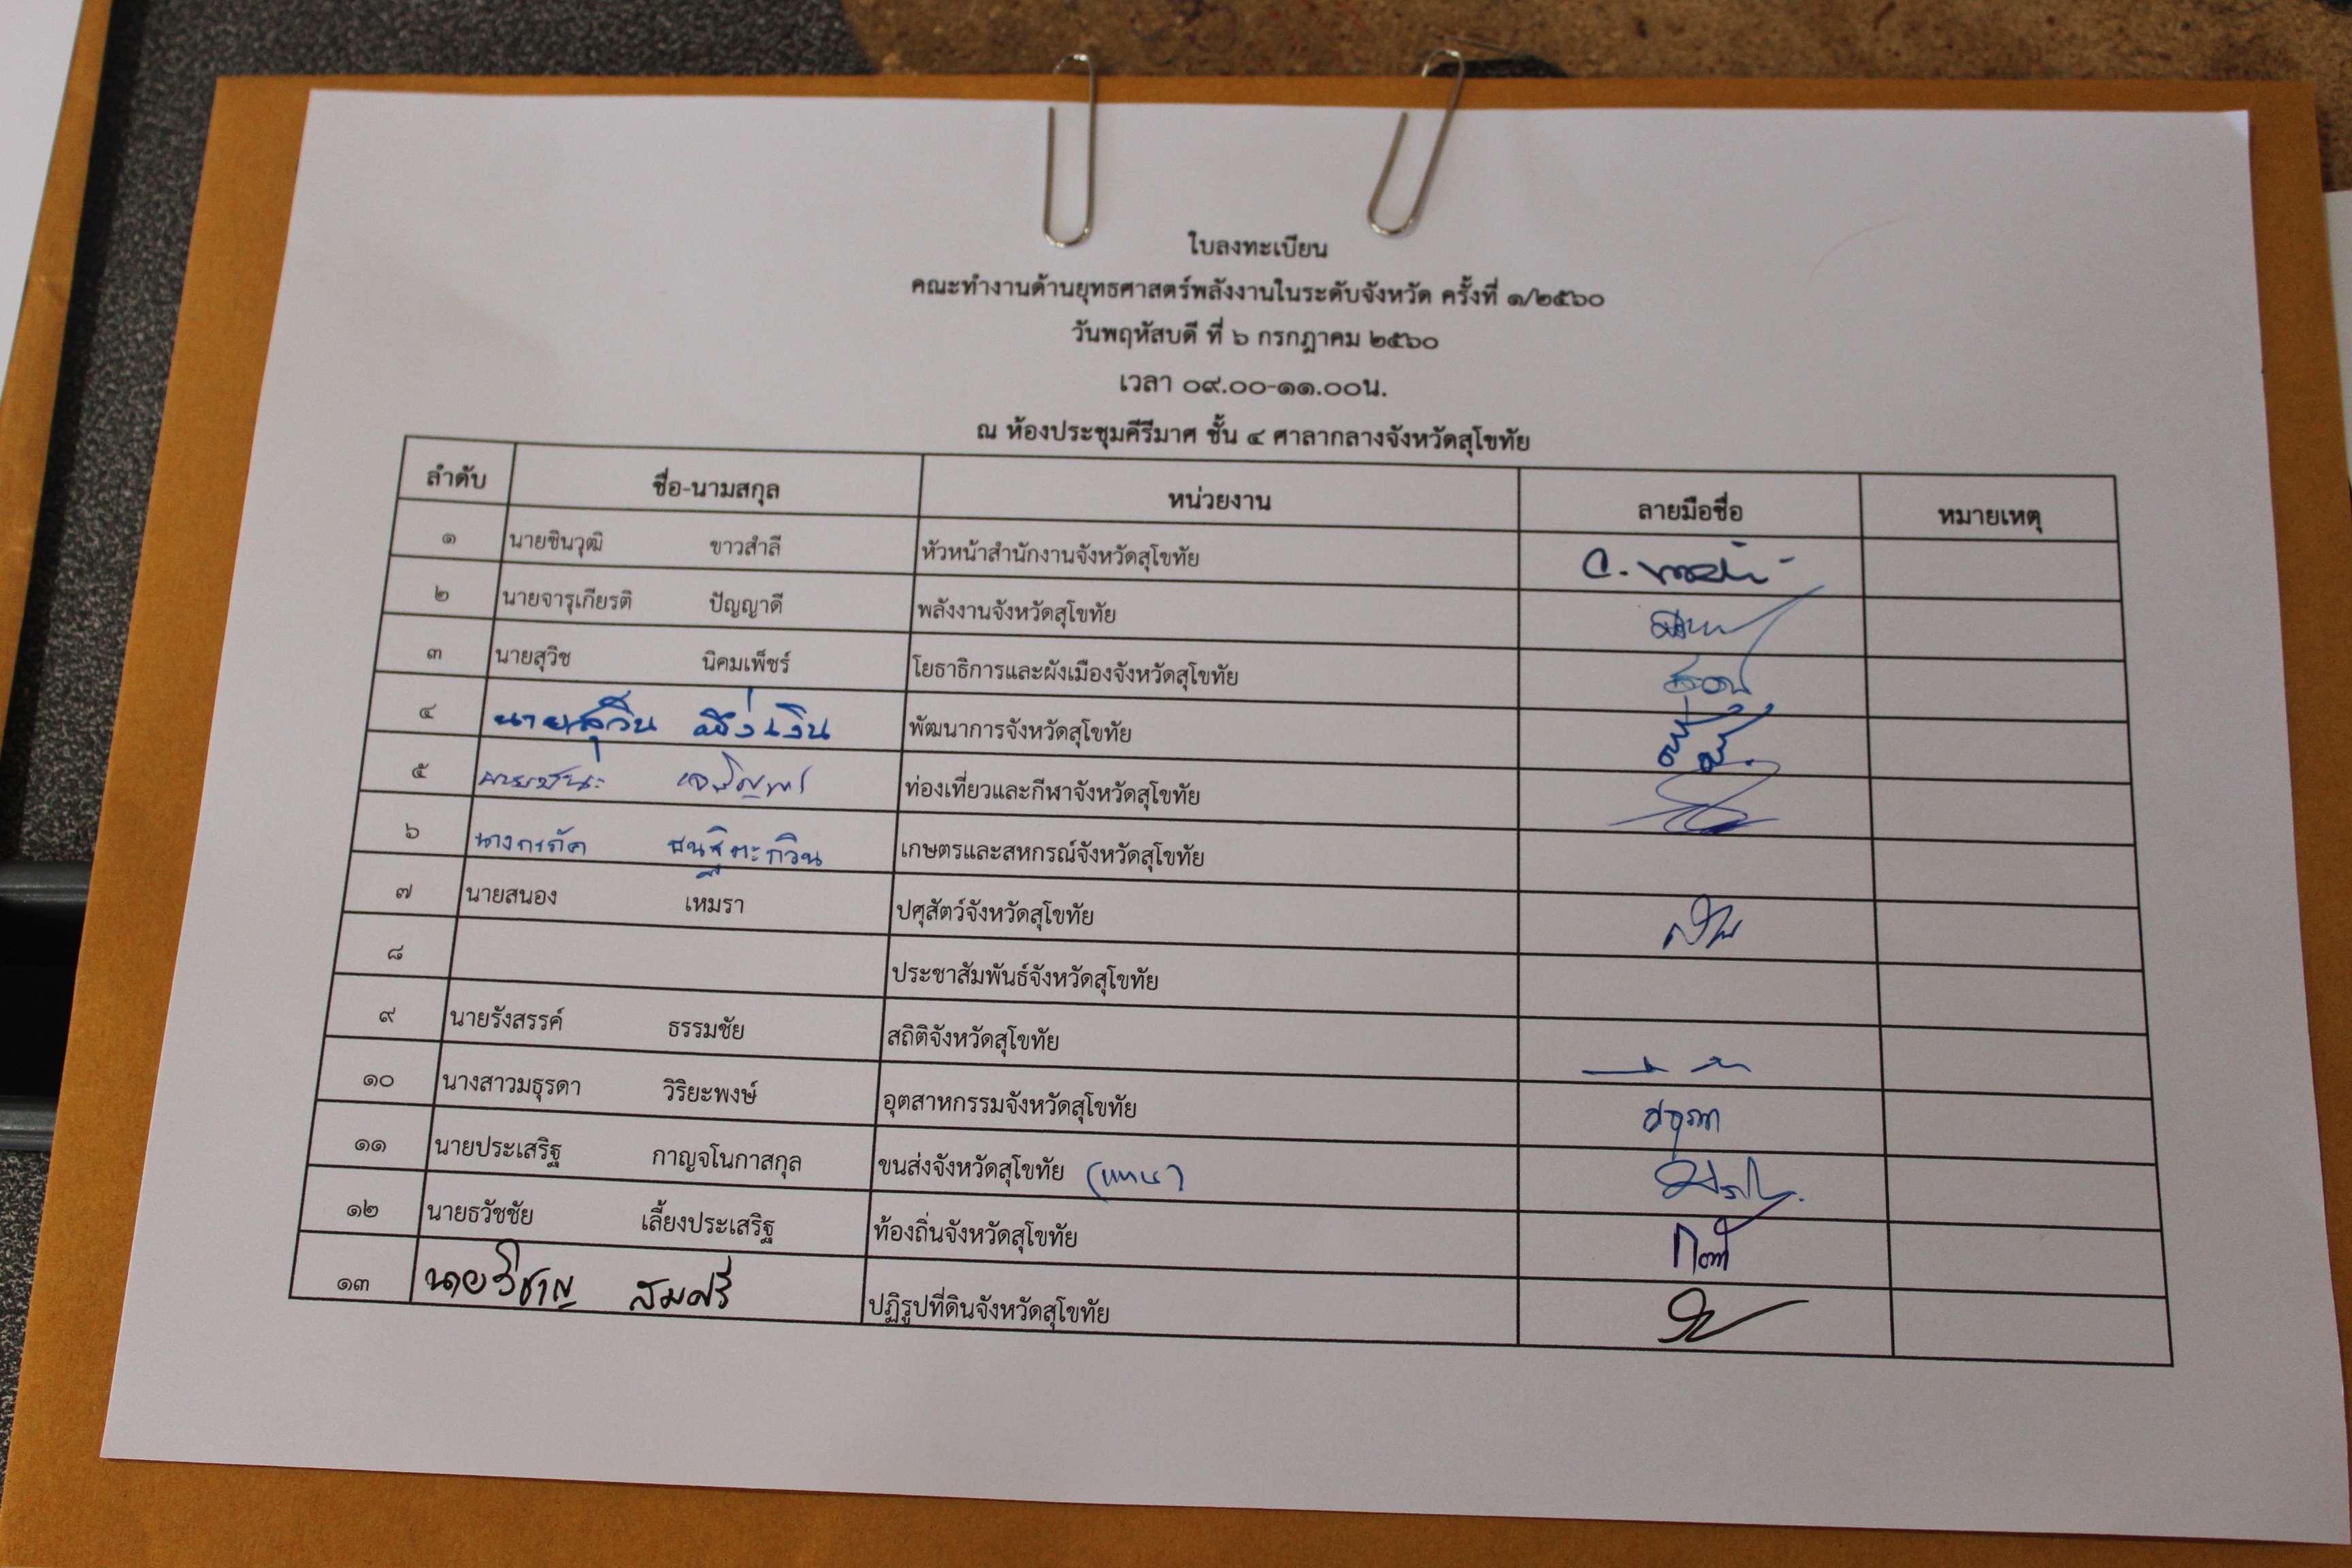 ใบลงทะเบียน
คณะทำงานด้านยุทธศาสตร์พลังงานในระดับจังหวัด ครั้งที่ ๑/๒๕๖๐
วันพฤหัสบดี ที่ ๖ กรกฎาคม ๒๕๖๐
เวลา ๐๙.๐๐-๑๑.๐๐น.
ณ ห้องประชุมคีรีมาศ ชั้น ๔ ศาลากลางจังหวัดสุโขทัย
ลำดับ ชื่อ-นามสกุล หน่วยงาน ลายมือชื่อ หมายเหตุ
๑ นายชินวุฒิ ขาวสำลี หัวหน้าสำนักงานจังหวัดสุโขทัย
๒ นายจารุเกียรติ ปัญญาดี พลังงานจังหวัดสุโขทัย
๓ นายสุวิช นิคมเพ็ชร์ โยธาธิการและผังเมืองจังหวัดสุโขทัย
๔ นายสุวิน ผึ่งเงิน พัฒนาการจังหวัดสุโขทัย
๕ ท่องเที่ยวและกีฬาจังหวัดสุโขทัย
๖ เกษตรและสหกรณ์จังหวัดสุโขทัย
๗ นายสนอง เหมรา ปศุสัตว์จังหวัดสุโขทัย
๘ ประชาสัมพันธ์จังหวัดสุโขทัย
๙ นายรังสรรค์ ธรรมชัย สถิติจังหวัดสุโขทัย
๑๐ นางสาวมธุรดา วิริยะพงษ์ อุตสาหกรรมจังหวัดสุโขทัย
๑๑ นายประเสริฐ กาญจโนภาสกุล ขนส่งจังหวัดสุโขทัย (แทน)
๑๒ นายธวัชชัย เลี้ยงประเสริฐ ท้องถิ่นจังหวัดสุโขทัย
๑๓ นายวิชาญ สมศรี ปฏิรูปที่ดินจังหวัดสุโขทัย